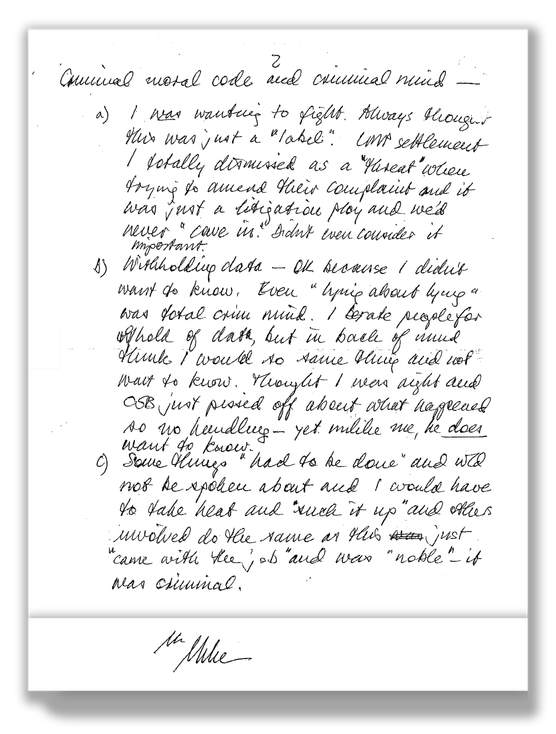 2
Criminal moral code and criminal mind —
a) I was wanting to fight. Always thought
this was just a "label". settlement
I totally dismissed as a "threat" when
trying to amend their complaint and it
was just a litigation ploy and we'd
never "cave in." Didn't even consider it
important.
b) Withholding data — OK because I didn't
want to know. Even "lying about lying"
was total crim mind. I berate people for
w/hold of data, but in back of mind
think I would so same thing and not
want to know. Thought I was right and
OSB just pissed off about what happened
so no handling — yet unlike me, he does
want to know.
c) Some things "had to be done" and w'ld
not be spoken about and I would have
to take heat and "suck it up" and others
involved do the same as this just
"came with the job" and was "noble" — it
was criminal.
Mike